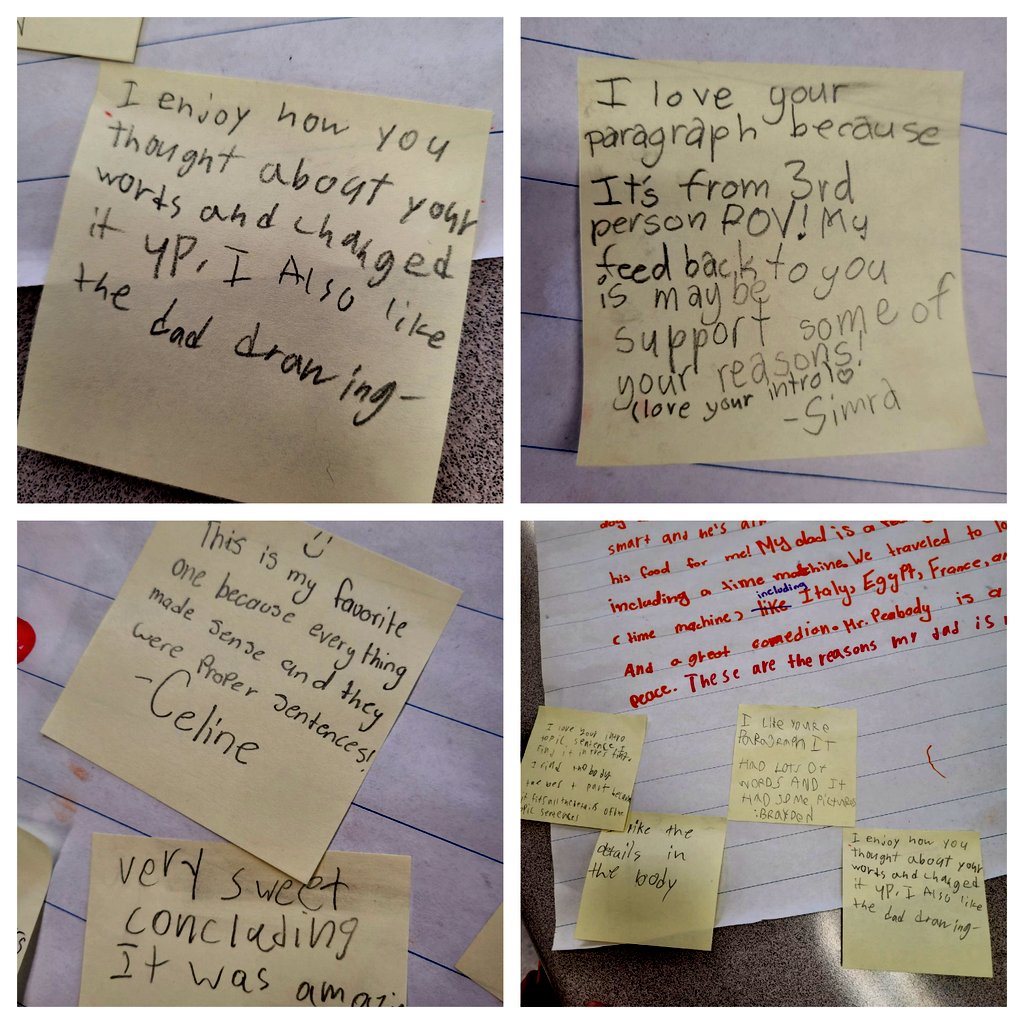 I enjoy how you
thought about your
words and changed
it up, I Also like
the dad drawing-
I love your
paragraph because
It's from 3rd
person POV! My
feedback to you
is maybe
support some of
your reasons!
(love your intro)♡
-Simra
This is my favorite
one because everything
made sense and they
were Proper sentences!
-Celine
very sweet
concluding
It was
smart and he's
his food for me! My dad is a
including a time machine. We traveled to
including
(time machine) like Italy, Egypt, France,
And a great comedian. Mr. Peabody is a
peace. These are the reasons my dad is
I love your intro
topic sentence I
find it
I find the body
the best part
topic sentences
like the
details in
the body
I LIKE YOURE
PARAGRAPH IT
HAD LOTS OF
WORDS AND IT
HAD SOME PICTURES
:BRAYDEN
I enjoy how you
thought about your
words and changed
it up, I Also like
the dad drawing-